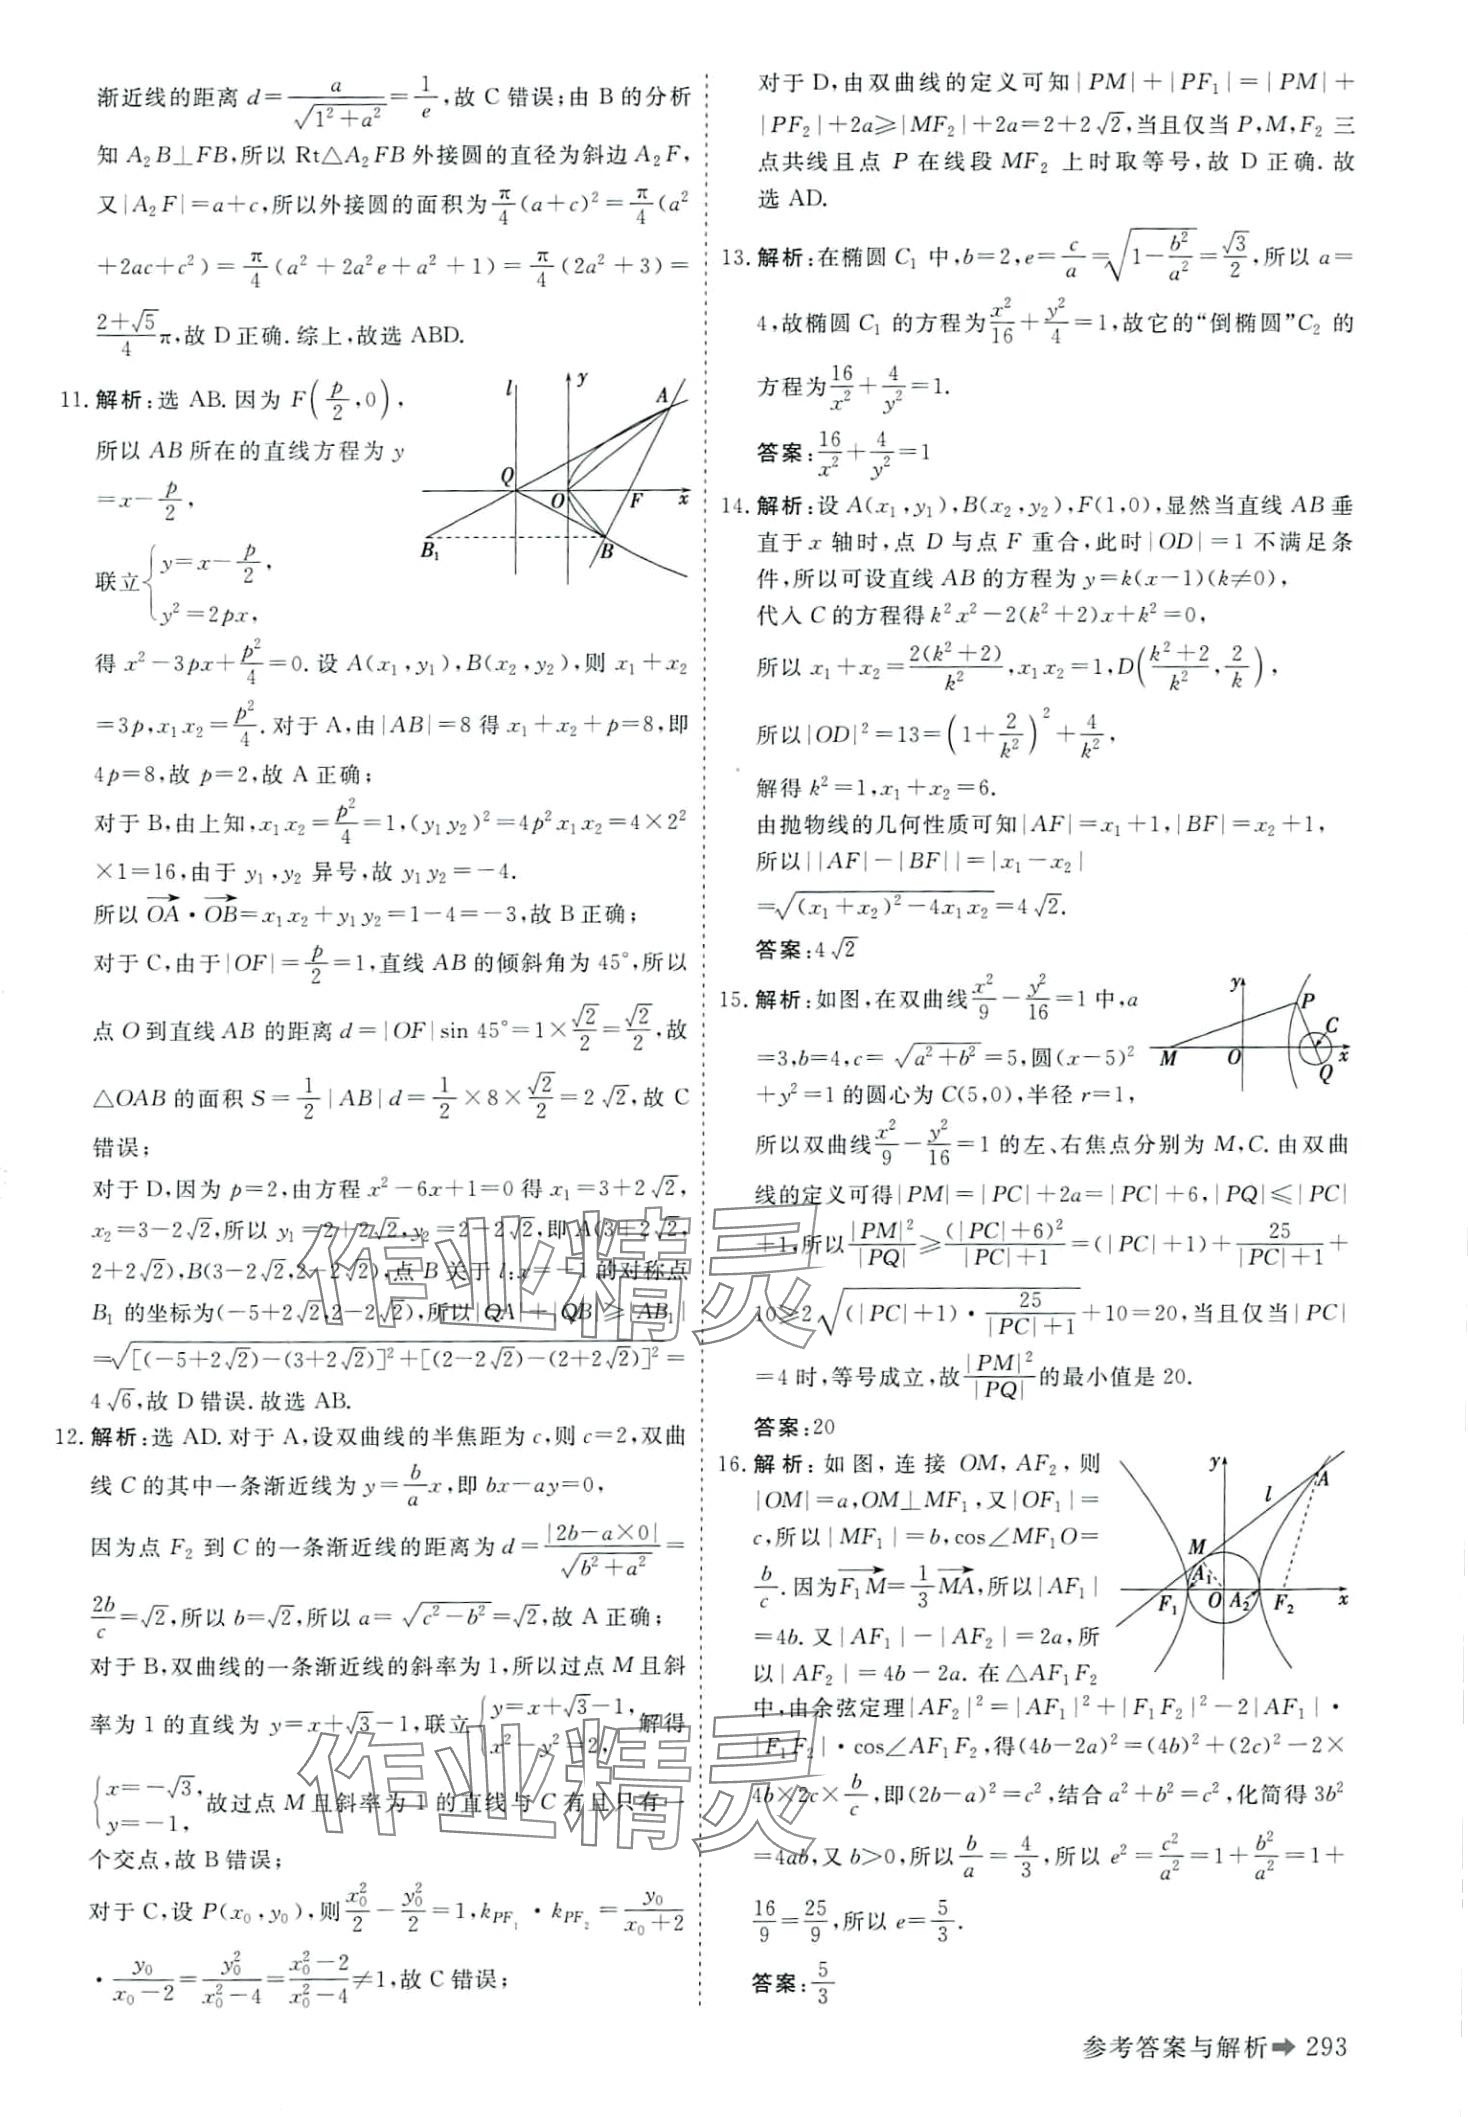 渐近线的距离 d=a/√(1²+a²)=1/e,故 C 错误;由 B 的分析
知 A₂B⊥FB,所以 Rt△A₂FB 外接圆的直径为斜边 A₂F,
又|A₂F|=a+c,所以外接圆的面积为π/4(a+c)²=π/4(a²
+2ac+c²)=π/4(a²+2a²e+a²+1)=π/4(2a²+3)=
(2+√5)/4 π,故 D 正确.综上,故选 ABD.
11.解析:选 AB.因为 F(p/2,0),
所以 AB 所在的直线方程为 y
=x-p/2,
联立{y=x-p/2,
y²=2px,
l y A Q O F x B₁ B
得 x²-3px+p²/4=0.设 A(x₁,y₁),B(x₂,y₂),则 x₁+x₂
=3p,x₁x₂=p²/4.对于 A,由|AB|=8 得 x₁+x₂+p=8,即
4p=8,故 p=2,故 A 正确;
对于 B,由上知,x₁x₂=p²/4=1,(y₁y₂)²=4p²x₁x₂=4×2²
×1=16,由于 y₁,y₂ 异号,故 y₁y₂=-4.
所以 OA→·OB→=x₁x₂+y₁y₂=1-4=-3,故 B 正确;
对于 C,由于|OF|=p/2=1,直线 AB 的倾斜角为 45°,所以
点 O 到直线 AB 的距离 d=|OF|sin 45°=1×√2/2=√2/2,故
△OAB 的面积 S=1/2|AB|d=1/2×8×√2/2=2√2,故 C
错误;
对于 D,因为 p=2,由方程 x²-6x+1=0 得 x₁=3+2√2,
x₂=3-2√2,所以 y₁=2+2√2,y₂=2-2√2,即 A(3+2√2,
2+2√2),B(3-2√2,2-2√2),点 B 关于 l:x=-1 的对称点
B₁ 的坐标为(-5+2√2,2-2√2),所以|QA|+|QB|≥|AB₁|
=√([(-5+2√2)-(3+2√2)]²+[(2-2√2)-(2+2√2)]²)=
4√6,故 D 错误.故选 AB.
12.解析:选 AD.对于 A,设双曲线的半焦距为 c,则 c=2,双曲
线 C 的其中一条渐近线为 y=b/a x,即 bx-ay=0,
因为点 F₂ 到 C 的一条渐近线的距离为 d=|2b-a×0|/√(b²+a²)=
2b/c=√2,所以 b=√2,所以 a=√(c²-b²)=√2,故 A 正确;
对于 B,双曲线的一条渐近线的斜率为 1,所以过点 M 且斜
率为 1 的直线为 y=x+√3-1,联立{y=x+√3-1,
x²-y²=2,解得
{x=-√3,
y=-1,故过点 M 且斜率为 1 的直线与 C 有且只有一
个交点,故 B 错误;
对于 C,设 P(x₀,y₀),则x₀²/2-y₀²/2=1,k_PF₁·k_PF₂=y₀/(x₀+2)
·y₀/(x₀-2)=y₀²/(x₀²-4)=(x₀²-2)/(x₀²-4)≠1,故 C 错误;
对于 D,由双曲线的定义可知|PM|+|PF₁|=|PM|+
|PF₂|+2a≥|MF₂|+2a=2+2√2,当且仅当 P,M,F₂ 三
点共线且点 P 在线段 MF₂ 上时取等号,故 D 正确.故
选 AD.
13.解析:在椭圆 C₁ 中,b=2,e=c/a=√(1-b²/a²)=√3/2,所以 a=
4,故椭圆 C₁ 的方程为x²/16+y²/4=1,故它的“倒椭圆”C₂ 的
方程为16/x²+4/y²=1.
答案:16/x²+4/y²=1
14.解析:设 A(x₁,y₁),B(x₂,y₂),F(1,0),显然当直线 AB 垂
直于 x 轴时,点 D 与点 F 重合,此时|OD|=1 不满足条
件,所以可设直线 AB 的方程为 y=k(x-1)(k≠0),
代入 C 的方程得 k²x²-2(k²+2)x+k²=0,
所以 x₁+x₂=2(k²+2)/k²,x₁x₂=1,D((k²+2)/k²,2/k),
所以|OD|²=13=(1+2/k²)²+4/k²,
解得 k²=1,x₁+x₂=6.
由抛物线的几何性质可知|AF|=x₁+1,|BF|=x₂+1,
所以||AF|-|BF||=|x₁-x₂|
=√((x₁+x₂)²-4x₁x₂)=4√2.
答案:4√2
15.解析:如图,在双曲线x²/9-y²/16=1 中,a
=3,b=4,c=√(a²+b²)=5,圆(x-5)²
+y²=1 的圆心为 C(5,0),半径 r=1,
y P C M O x Q
所以双曲线x²/9-y²/16=1 的左、右焦点分别为 M,C.由双曲
线的定义可得|PM|=|PC|+2a=|PC|+6,|PQ|≤|PC|
+1,所以|PM|²/|PQ|≥(|PC|+6)²/(|PC|+1)=(|PC|+1)+25/(|PC|+1)+
10≥2√((|PC|+1)·25/(|PC|+1))+10=20,当且仅当|PC|
=4 时,等号成立,故|PM|²/|PQ|的最小值是 20.
答案:20
16.解析:如图,连接 OM,AF₂,则
|OM|=a,OM⊥MF₁,又|OF₁|=
c,所以|MF₁|=b,cos∠MF₁O=
b/c.因为F₁M→=1/3 MA→,所以|AF₁|
=4b.又|AF₁|-|AF₂|=2a,所
以|AF₂|=4b-2a.在△AF₁F₂
y A l M A₁ F₁ O A₂ F₂ x
中,由余弦定理|AF₂|²=|AF₁|²+|F₁F₂|²-2|AF₁|·
|F₁F₂|·cos∠AF₁F₂,得(4b-2a)²=(4b)²+(2c)²-2×
4b×2c×b/c,即(2b-a)²=c²,结合 a²+b²=c²,化简得 3b²
=4ab,又 b>0,所以b/a=4/3,所以 e²=c²/a²=1+b²/a²=1+
16/9=25/9,所以 e=5/3.
答案:5/3
作业精灵
作业精灵
参考答案与解析➡293